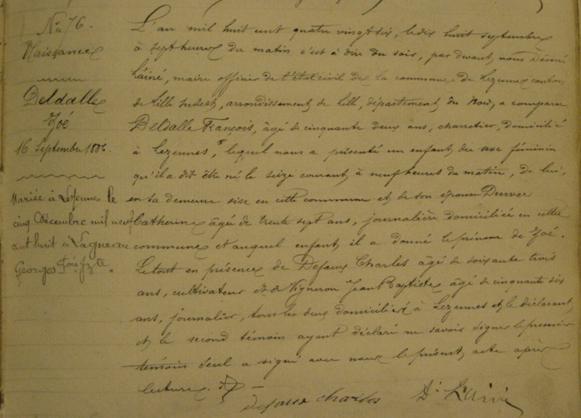 No 76.
Naissance
Deldalle
Zoé
16 Septembre 1886
Mariée à Lezennes le
cinq Décembre mil neuf
cent huit à
Georges
L'an mil huit cent quatre vingt six, le dix huit septembre
à sept heures du matin c'est à dire du soir, par devant nous Désiré
Lainé, maire officier de l'état civil de la commune de Lezennes canton
de Lille sudest, arrondissement de Lille, département du Nord, a comparu
Deldalle François, âgé de cinquante deux ans, charretier, domicilié
à Lezennes, lequel nous a présenté un enfant du sexe féminin
qu'il a dit être né le seize courant, à neuf heures du matin, de lui,
en sa demeure sise en cette commune et de son épouse
Catherine âgée de trente sept ans, journalière domiciliée en cette
commune et auquel enfant, il a donné le prénom de Zoé.
Le tout en présence de Desaux Charles âgé de soixante trois
ans, cultivateur et de Vigneron Jean Baptiste âgé de cinquante six
ans, journalier, tous les deux domiciliés à Lezennes et, le déclarant
et le second témoin ayant déclaré ne savoir signer le premier
témoin seul a signé avec nous le présent acte après
lecture.
Desaux Charles D. Lainé